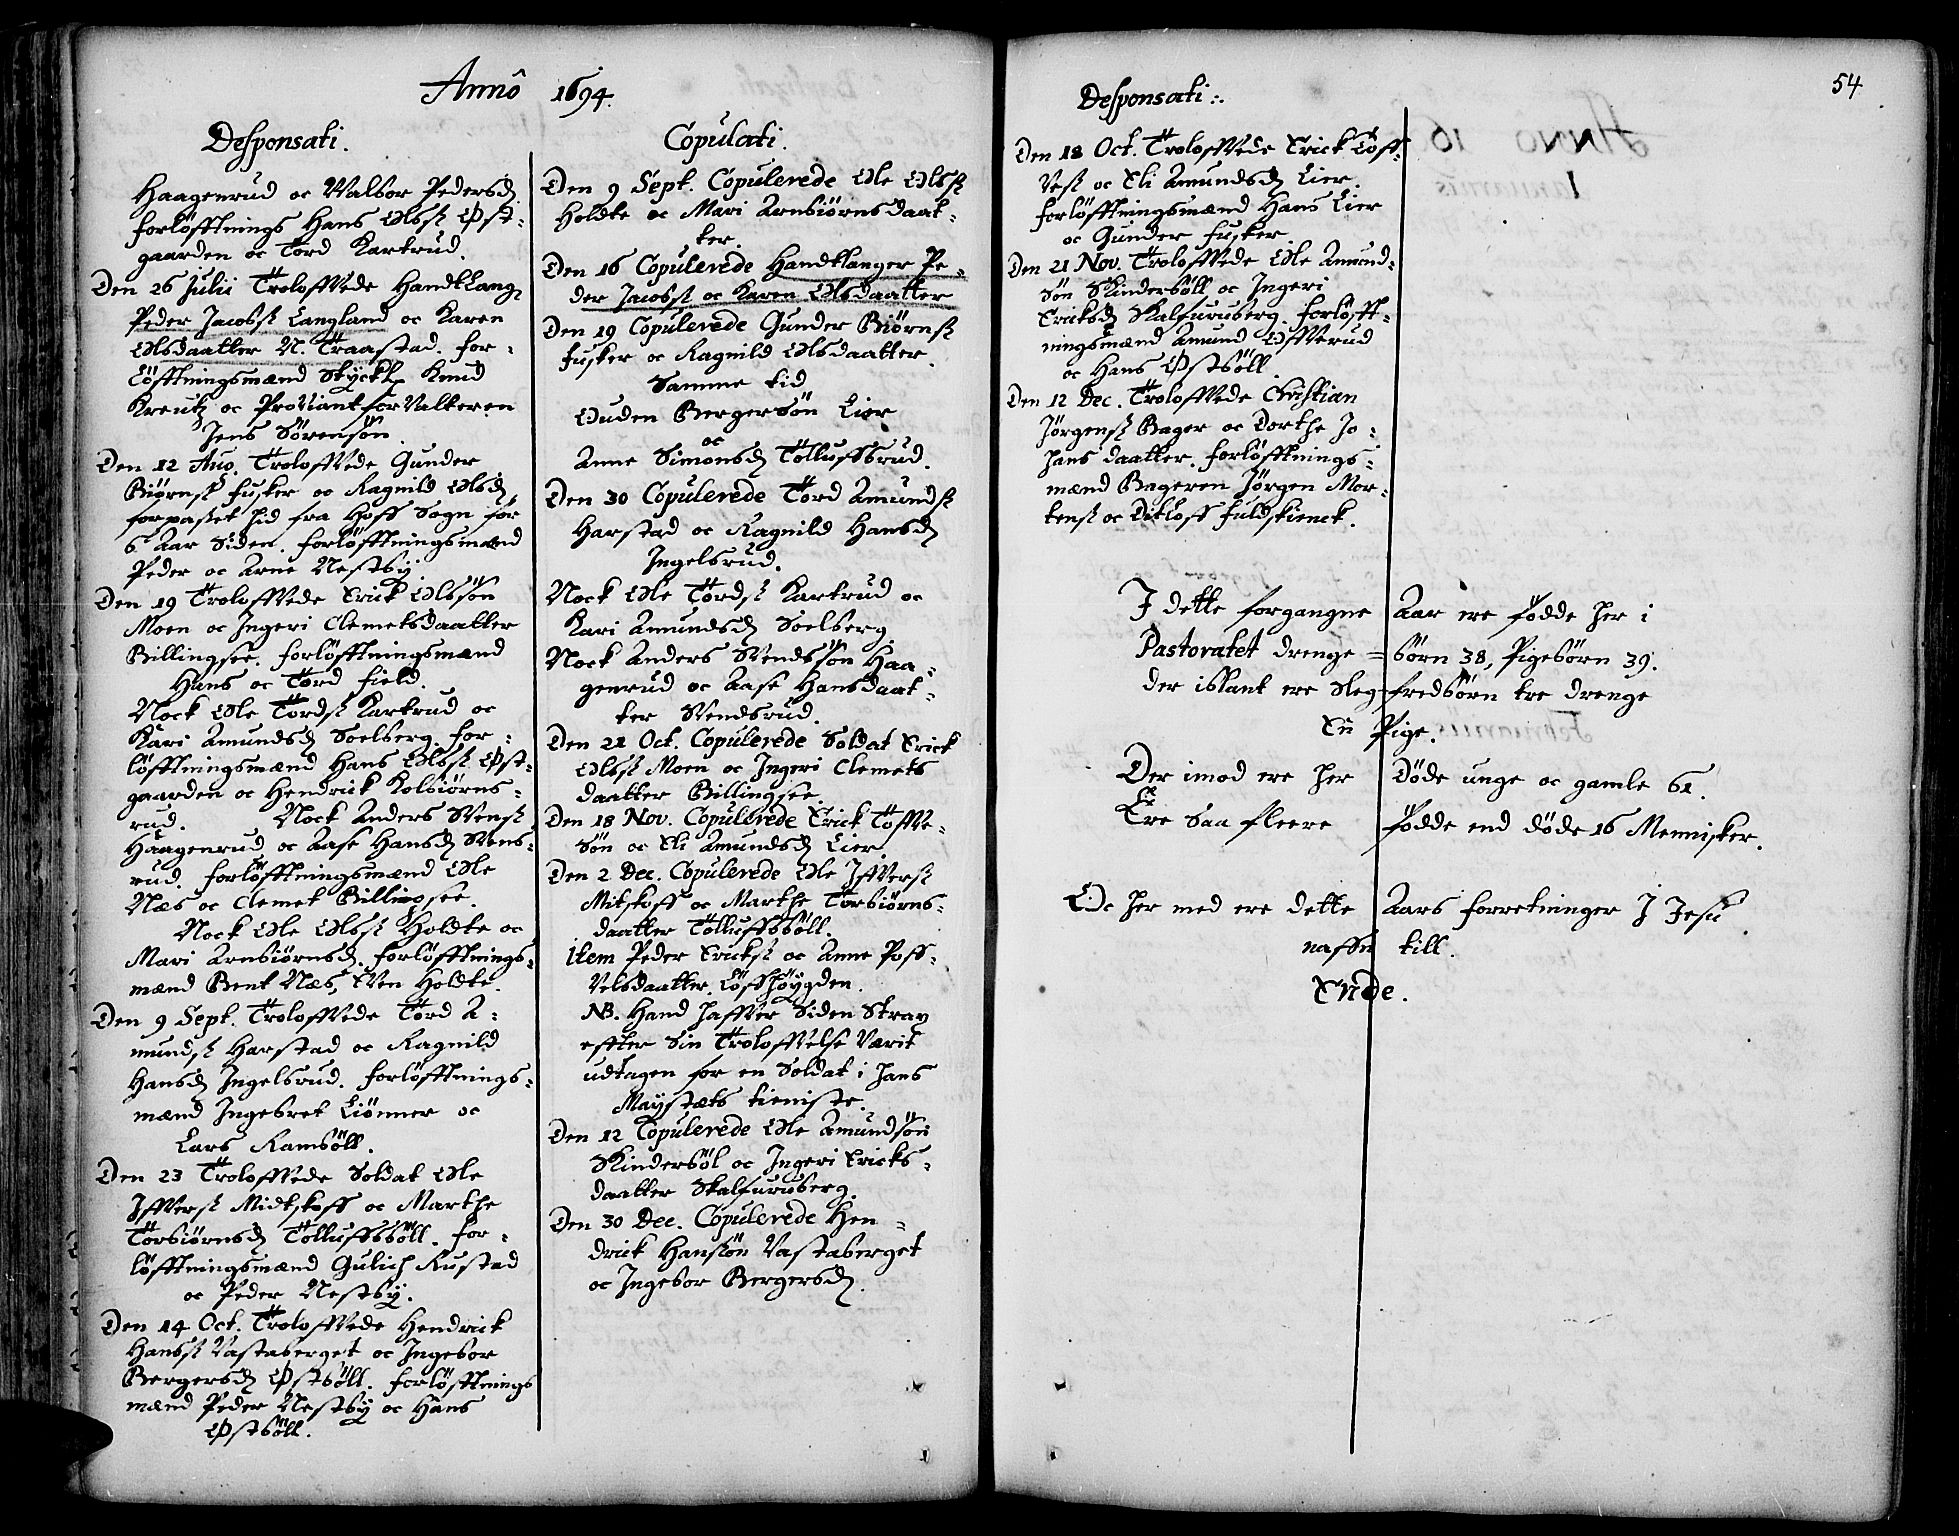 Annô 1694.
Desponsati.
Haagenrud oc Walbor Pedersd
forløfftnings Hans Olss Øst-
gaarden oc Tord Kartrud.
Den 26 Julii TrolofVede Handtlang
Peder Jacobss Langland oc Karen
Olsdaatter N. Traastad. for-
løfftningsmænd Styckl. Knud
Kreutz oc ProviantforValteren
Jens Sørensøn.
Den 12 Aug. TrolofVede Gunder
Biørnss fusker oc Ragnild Olsd
forpasset hid fra Hoff Sogn for
6 Aar Siden. forløfftningsmænd
Peder oc Arne Nestby.
Den 19 TrolofVede Erick Olssøn
Moen oc Ingeri Clemetsdaatter
Billingsee. forløfftningsmænd
Hans oc Tord field.
Nock Ole Tordss Kartrud oc
Kari Amundsd Soelberg. for-
løfftningsmænd Hans Olss Øst-
gaarden oc Hendrick Kolbiørns-
rud. Nock Anders Svenss
Haagenrud oc Aase Hansd Svens-
rud. forløfftningsmænd Ole
Næs oc Clemet Billingsee.
Nock Ole Olss Holdte oc
Mari Arnbiørnsd. forløfftnings-
mænd Bent Næs, Sven Holdte.
Den 9 Sept. TrolofVede Tord A-
mundss Harstad oc Ragnild
Hansd Ingelsrud. forløfftnings-
mænd Ingebret Liønner oc
Lars Ramsøll.
Den 23 TrolofVede Soldat Ole
IfVerss Midtskoff oc Marthe
Torbiørnsd Tølluffsbøll. for-
løfftningsmænd Gulich Rustad
oc Peder Nestby.
Den 14 Oct. TrolofVede Hendrick
Hanss Vastaberget oc Ingebor
Bergersd Østbøll. forløfftnings
mænd Peder Nestby oc Hans
Østbøll.
Copulati.
Den 9 Sept. Copulerede Ole Olss
Holdte oc Mari Arnbiørnsdaat-
ter.
Den 16 Copulerede Handtlanger Pe-
der Jacobss oc Karen Olsdaatter
Den 19 Copulerede Gunder Biørnss
fusker oc Ragnild Olsdaatter.
Samme tid
Ouden Bergersøn Lier
oc
Anne Simonsd Tølluffsrud.
Den 30 Copulerede Tord Amundss
Harstad oc Ragnild Hansd
Ingelsrud.
Nock Ole Tordss Kartrud oc
Kari Amundsd Soelberg.
Nock Anders Svendssøn Haa-
genrud oc Aase Hansdaat-
ter Svendsrud.
Den 21 Oct. Copulerede Soldat Erick
Olss Moen oc Ingeri Clemets
daatter Billingsee.
Den 18 Nov. Copulerede Erick TøfVe-
Søn oc Eli Amundsd Lier.
Den 2 Dec. Copulerede Ole IfVerss
Mitskoff oc Marthe Torbiørns-
daatter Tølluffsbøll.
item Peder Erickss oc Anne Poff-
Velsdaatter. Løfhøygden.
NB. Hand hafVer Siden Strax
effter Sin TrolofVelse Værit
udtagen for en Soldat i hans
Maystæts tieniste.
Den 12 Copulerede Ole Amundsøn
Skinderbøl oc Ingeri Ericks-
daatter Skalfuruberg.
Den 30 Dec. Copulerede Hen-
drick Hansøn Vastaberget
oc Ingebor Bergersd.
54
Desponsati:.
Den 18 Oct. TrolofVede Erick Tøff-
Vess oc Eli Amundsd Lier.
forløfftningsmænd Hans Lier
oc Gunder fusker.
Den 21 Nov. TrolofVede Ole Amund-
Søn Skinderbøll oc Ingeri
Ericksd Skalfuruberg. forløfft-
ningsmænd Amund OfVerud
oc Hans Østbøll.
Den 12 Dec. TrolofVede Christian
Jørgenss Bager oc Dorthe Jo-
hans daatter. forløfftnings-
mænd Bageren Jørgen Mor-
tenss oc Ditloff fuldskienck.
I dette forgangne Aar ere fødde her i
Pastoratet drenge=børn 38, Pigebørn 39.
der iblant ere Slegfredbørn tre drenge
En Pige.
Der imod ere her Døde unge oc gamle 61.
Ere Saa fleere fødde end døde 16 Mennisker.
Oc her med ere dette Aars forretninger I Jesu
naffn till
Ende.